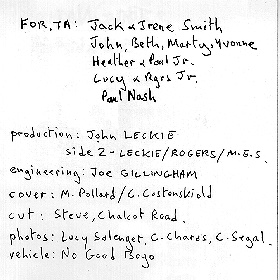 FOR, TA: Jack & Irene Smith
John, Beth, Marty, Yvonne
Heather & Paul Jr.
Lucy & Rgrs Jr.
Paul Nash
production: John LECKIE
side 2 - LECKIE/ROGERS/M.E.S.
engineering: Joe GILLINGHAM
cover: M. Pollard/C. Costenskiold
cut: Steve, Chalcot Road.
photos: Lucy Salenger, C. Chards, C. Segal.
vehicle: No Good Bogo